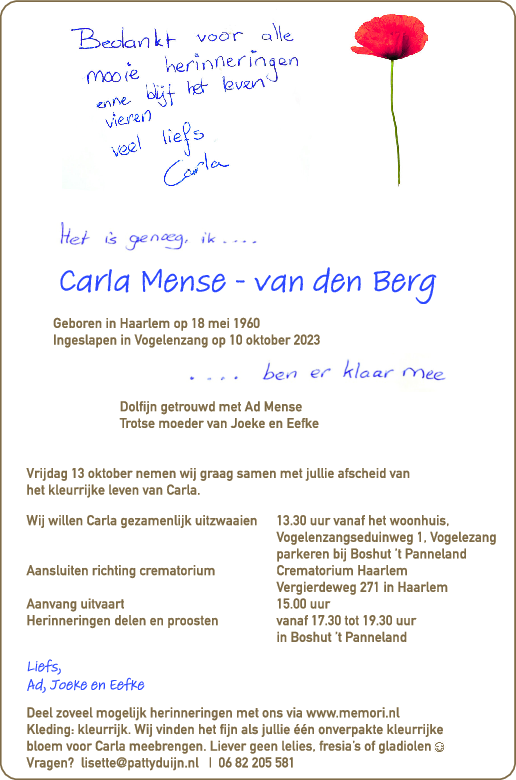 Bedankt voor alle
mooie herinneringen
enne blijf het leven
vieren
veel liefs
Carla
Het is genoeg, ik ....
Carla Mense - van den Berg
Geboren in Haarlem op 18 mei 1960
Ingeslapen in Vogelenzang op 10 oktober 2023
.... ben er klaar mee
Dolfijn getrouwd met Ad Mense
Trotse moeder van Joeke en Eefke
Vrijdag 13 oktober nemen wij graag samen met jullie afscheid van
het kleurrijke leven van Carla.
Wij willen Carla gezamenlijk uitzwaaien 13.30 uur vanaf het woonhuis,
Vogelenzangseduinweg 1, Vogelezang
parkeren bij Boshut 't Panneland
Aansluiten richting crematorium Crematorium Haarlem
Vergierdeweg 271 in Haarlem
Aanvang uitvaart 15.00 uur
Herinneringen delen en proosten vanaf 17.30 tot 19.30 uur
in Boshut 't Panneland
Liefs,
Ad, Joeke en Eefke
Deel zoveel mogelijk herinneringen met ons via www.memori.nl
Kleding: kleurrijk. Wij vinden het fijn als jullie één onverpakte kleurrijke
bloem voor Carla meebrengen. Liever geen lelies, fresia's of gladiolen ☺
Vragen? lisette@pattyduijn.nl | 06 82 205 581